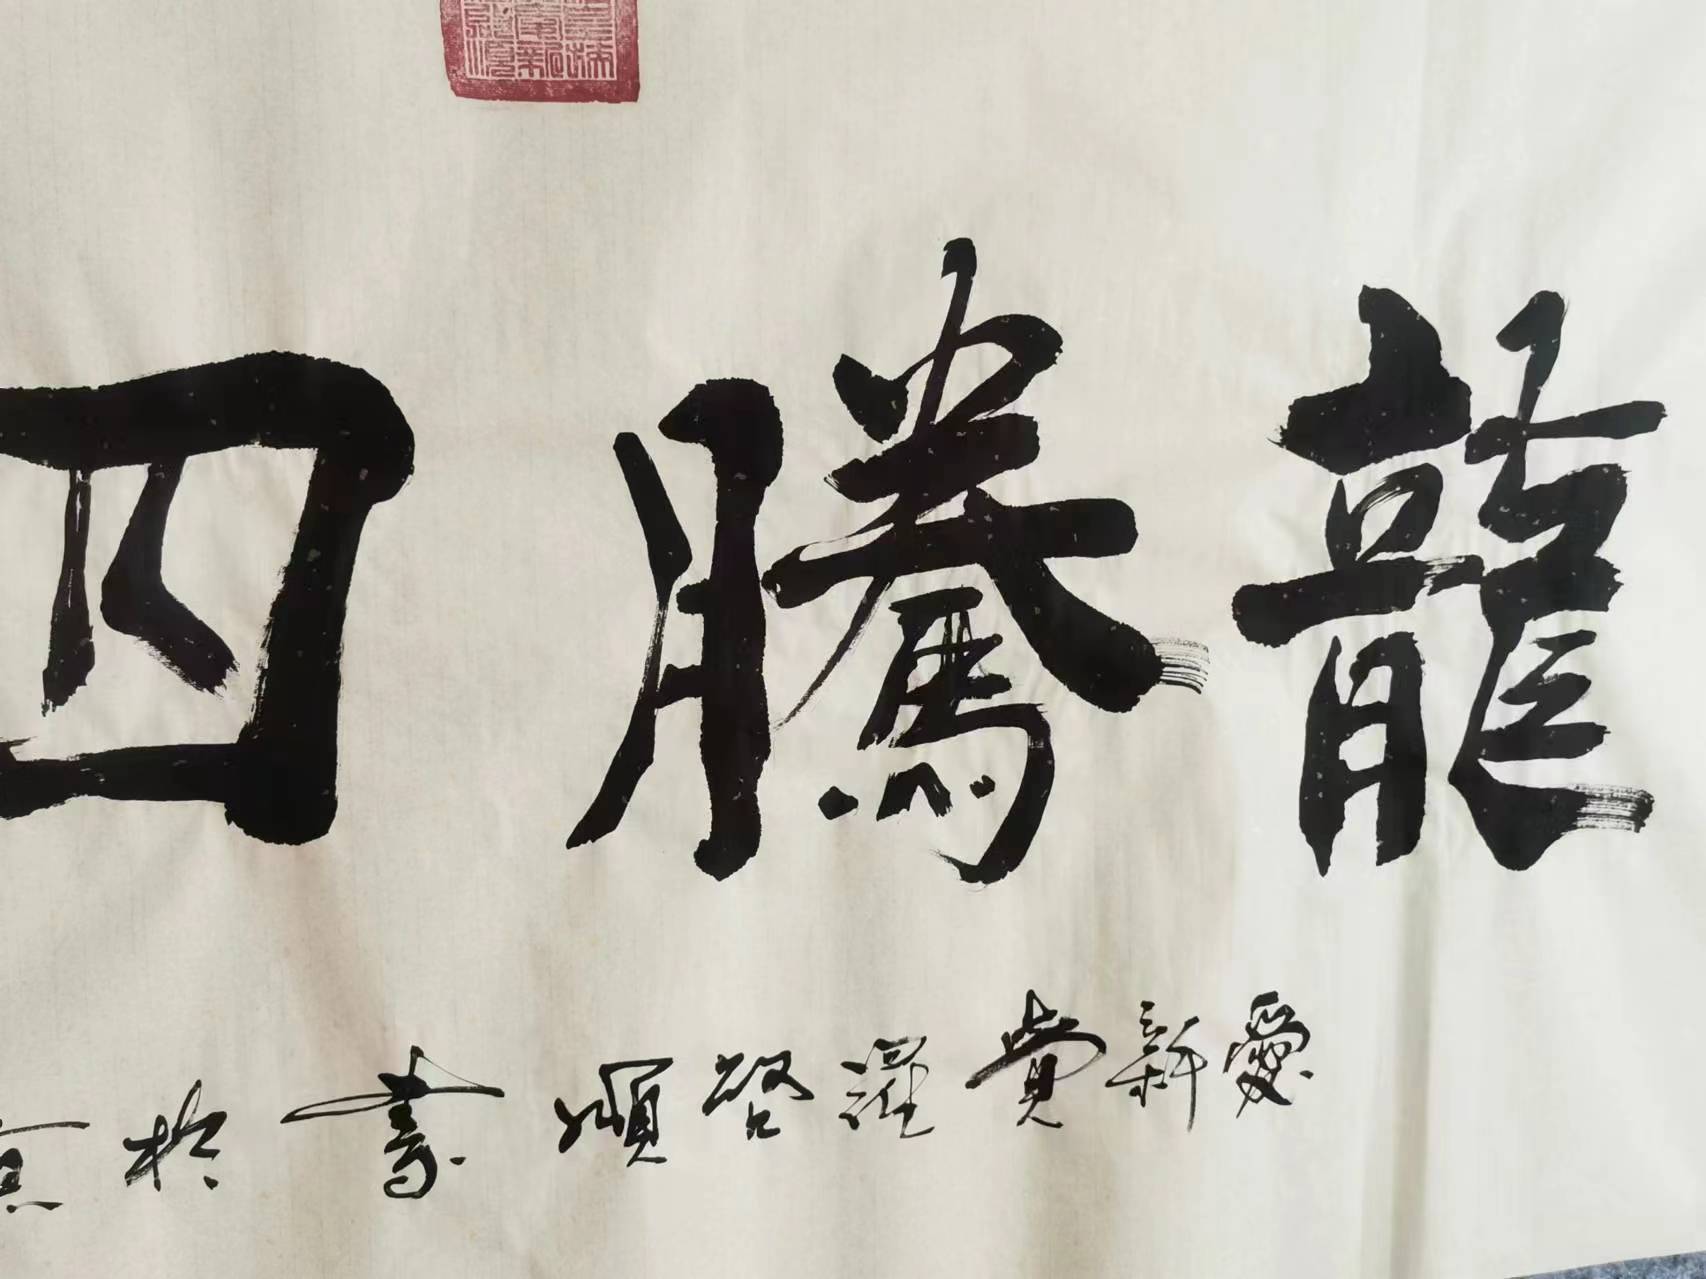 龍騰四
愛新覺羅啓順書於京